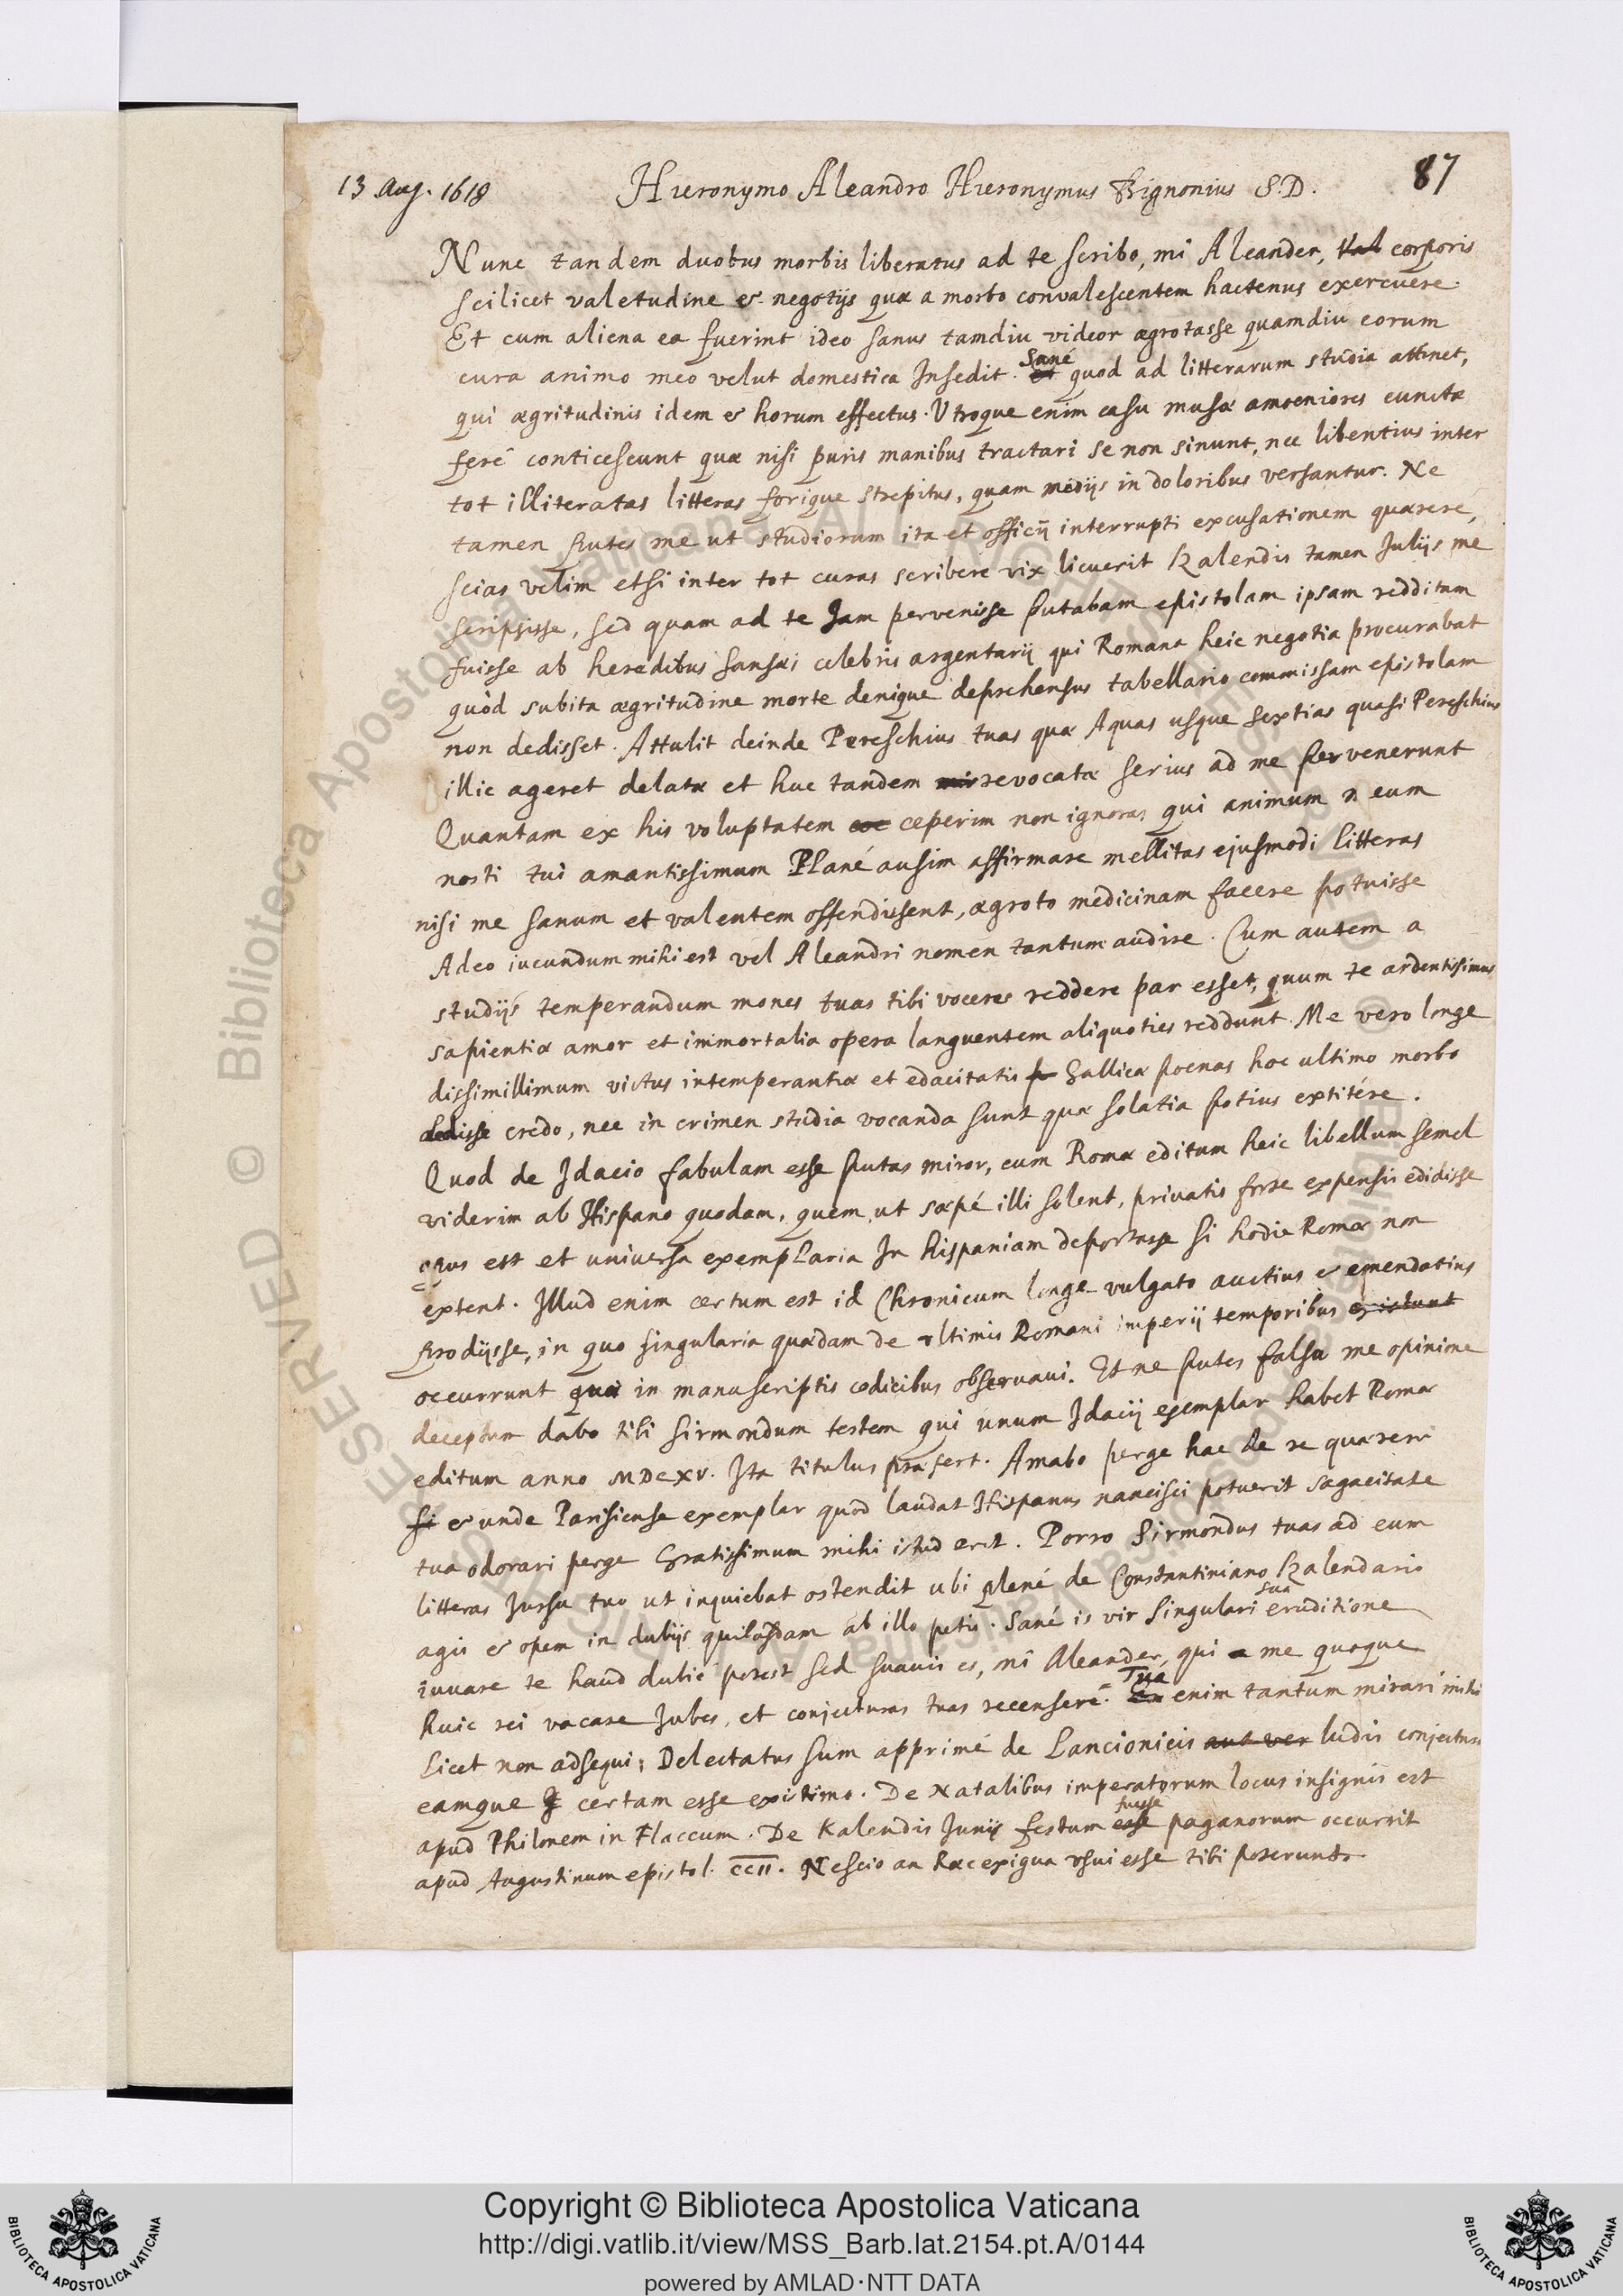 13 Aug. 1618
Hieronymo Aleandro Hieronymus Bignonius S.D.
87
Nunc tandem duobus morbis liberatus ad te scribo, mi Aleander, Val corporis
scilicet valetudine & negotijs quæ a morbo convalescentem hactenus exercuere.
Et cum aliena ea fuerint ideo sanus tamdiu videor ægrotasse quamdiu eorum
Sané
cura animo meo velut domestica Insedit. et quod ad litterarum studia attinet,
qui ægritudinis idem & horum effectus. Utroque enim casu musæ amoeniores cunctæ
feré conticescunt quæ nisi puris manibus tractari se non sinunt, nec libentius inter
tot illiteratas litteras forique strepitus, quam medijs in doloribus versantur. Ne
tamen putes me ut studiorum ita et officij interrupti excusationem quærere,
scias velim etsi inter tot curas scribere vix licuerit Kalendis tamen Julijs me
scripsisse, sed quam ad te Jam pervenisse putabam epistolam ipsam redditam
fuisse ab heredibus Sansæi celebris argentarij qui Romana heic negotia procurabat
quòd subita ægritudine morte denique deprehensus tabellario commissam epistolam
non dedisset. Attulit deinde Pereschius tuas quæ Aquas usque Sextias quasi Pereschius
illic ageret delatæ et huc tandem revocatæ serius ad me pervenerunt
Quantam ex his voluptatem coe ceperim non ignoras qui animum meum
nosti tui amantissimum Plané ausim affirmare mellitas ejusmodi litteras
nisi me sanum et valentem offendissent, ægroto medicinam facere potuisse
Adeo iucundum mihi est vel Aleandri nomen tantum audire. Cum autem a
studijs temperandum mones tuas tibi voces reddere par esset, quum te ardentissimus
sapientiæ amor et immortalia opera languentem aliquoties reddunt. Me vero longe
dissimillimum victus intemperantiæ et edacitatis p Gallicæ poenas hoc ultimo morbo
dedisse credo, nec in crimen studia vocanda sunt quæ solatia potius extitére.
Quod de Idacio fabulam esse putas miror, cum Romæ editum heic libellum semel
viderim ab Hispano quodam, quem, ut sæpé illi solent, privatis forte expensis edidisse
opus est et universa exemplaria In hispaniam deportasse si hodie Romæ non
extent. Illud enim certum est id Chronicum longe vulgato auctius & emendatius
prodijsse, in quo singularia quædam de ultimis Romani imperij temporibus existunt
occurrunt quæ in manuscriptis codicibus observavi. Et ne putes falsa me opinione
deceptum dabo tibi Sirmondum testem qui unum Idacij exemplar habet Romæ
editum anno MDCXV. Ita titulus præfert. Amabo perge hac de re quærere
si & unde Parisiense exemplar quod laudat Hispanus nancisci potuerit sagacitate
tua odorari perge Gratissimum mihi istud erit. Porro Sirmondus tuas ad eum
litteras Jussu tuo ut inquiebat ostendit ubi plené de Constantiniano Kalendario
sua
agis & opem in dubijs quibusdam ab illo petis. Sané is vir singulari eruditione
iuuare te haud dubié potest sed suavis es, mi Aleander, qui a me quoque
Tua
huic rei vacare Jubes, et conjecturas tuas recensere. Ea enim tantum mirari mihi
Licet non adsequi; Delectatus sum apprimé de Lancionicis aut ver ludis conjectura
eamque certam esse existimo. De Natalibus imperatorum locus insignis est
fuisse
apud Philonem in Flaccum. De Kalendis Junijs festum esse paganorum occurrit
apud Augustinum epistol. CCII. Nescio an hæc exigua usui esse tibi poterunt
© Biblioteca Apostolica Vaticana ALL RIGHTS RESERVED
Copyright © Biblioteca Apostolica Vaticana
http://digi.vatlib.it/view/MSS_Barb.lat.2154.pt.A/0144
powered by AMLAD·NTT DATA
BIBLIOTECA APOSTOLICA VATICANA
BIBLIOTECA APOSTOLICA VATICANA